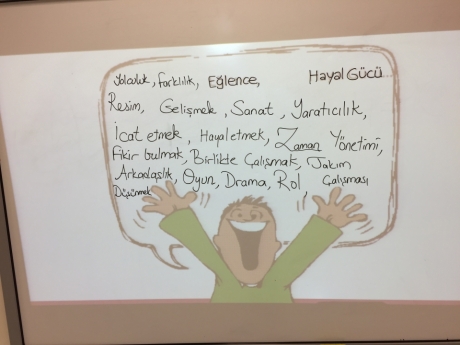 Yolculuk, Farklılık, Eğlence, Hayal Gücü...
Resim, Gelişmek, Sanat, Yaratıcılık,
İcat etmek, Hayal etmek, Zaman Yönetimi,
Fikir bulmak, Birlikte Çalışmak, Takım
Arkadaşlık, Oyun, Drama, Rol Çalışması
Düşünmek